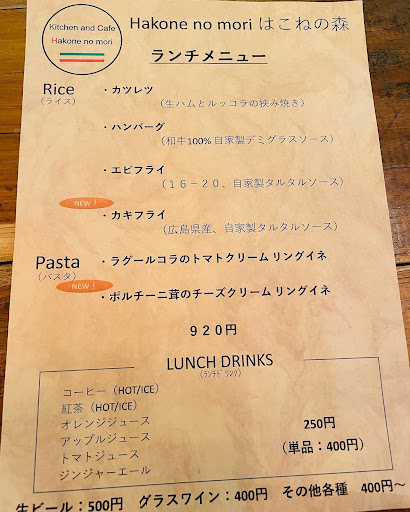 Kitchen and Cafe
Hakone no mori
Hakone no mori はこねの森
ランチメニュー
Rice
(ライス)
・カツレツ
(生ハムとルッコラの挟み焼き)
・ハンバーグ
(和牛100% 自家製デミグラスソース)
・エビフライ
(16-20、自家製タルタルソース)
NEW!
・カキフライ
(広島県産、自家製タルタルソース)
Pasta
(パスタ)
・ラグールコラのトマトクリーム リングイネ
NEW!
・ポルチーニ茸のチーズクリーム リングイネ
920円
LUNCH DRINKS
(ランチドリンク)
コーヒー (HOT/ICE)
紅茶 (HOT/ICE)
オレンジジュース
アップルジュース
トマトジュース
ジンジャーエール
250円
(単品:400円)
生ビール:500円 グラスワイン:400円 その他各種 400円~